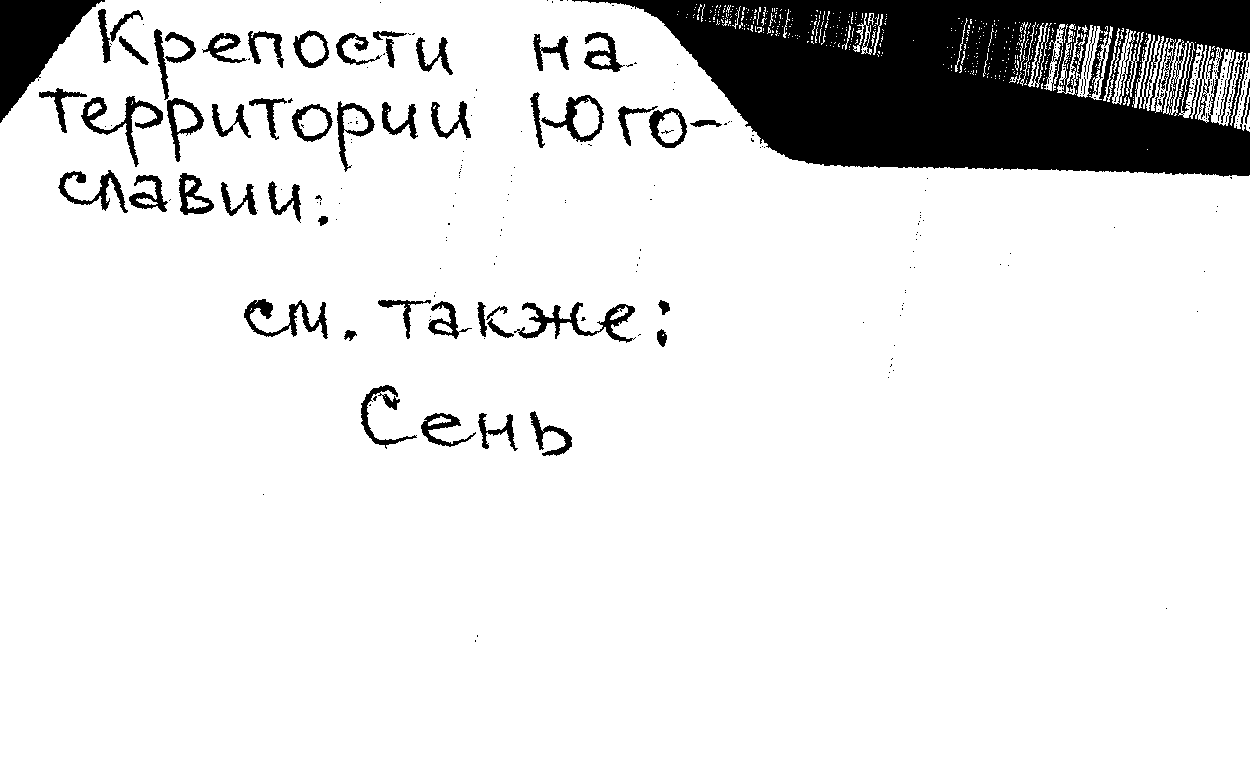 Крепости на
территории Юго-
славии.
см. также:
Сень